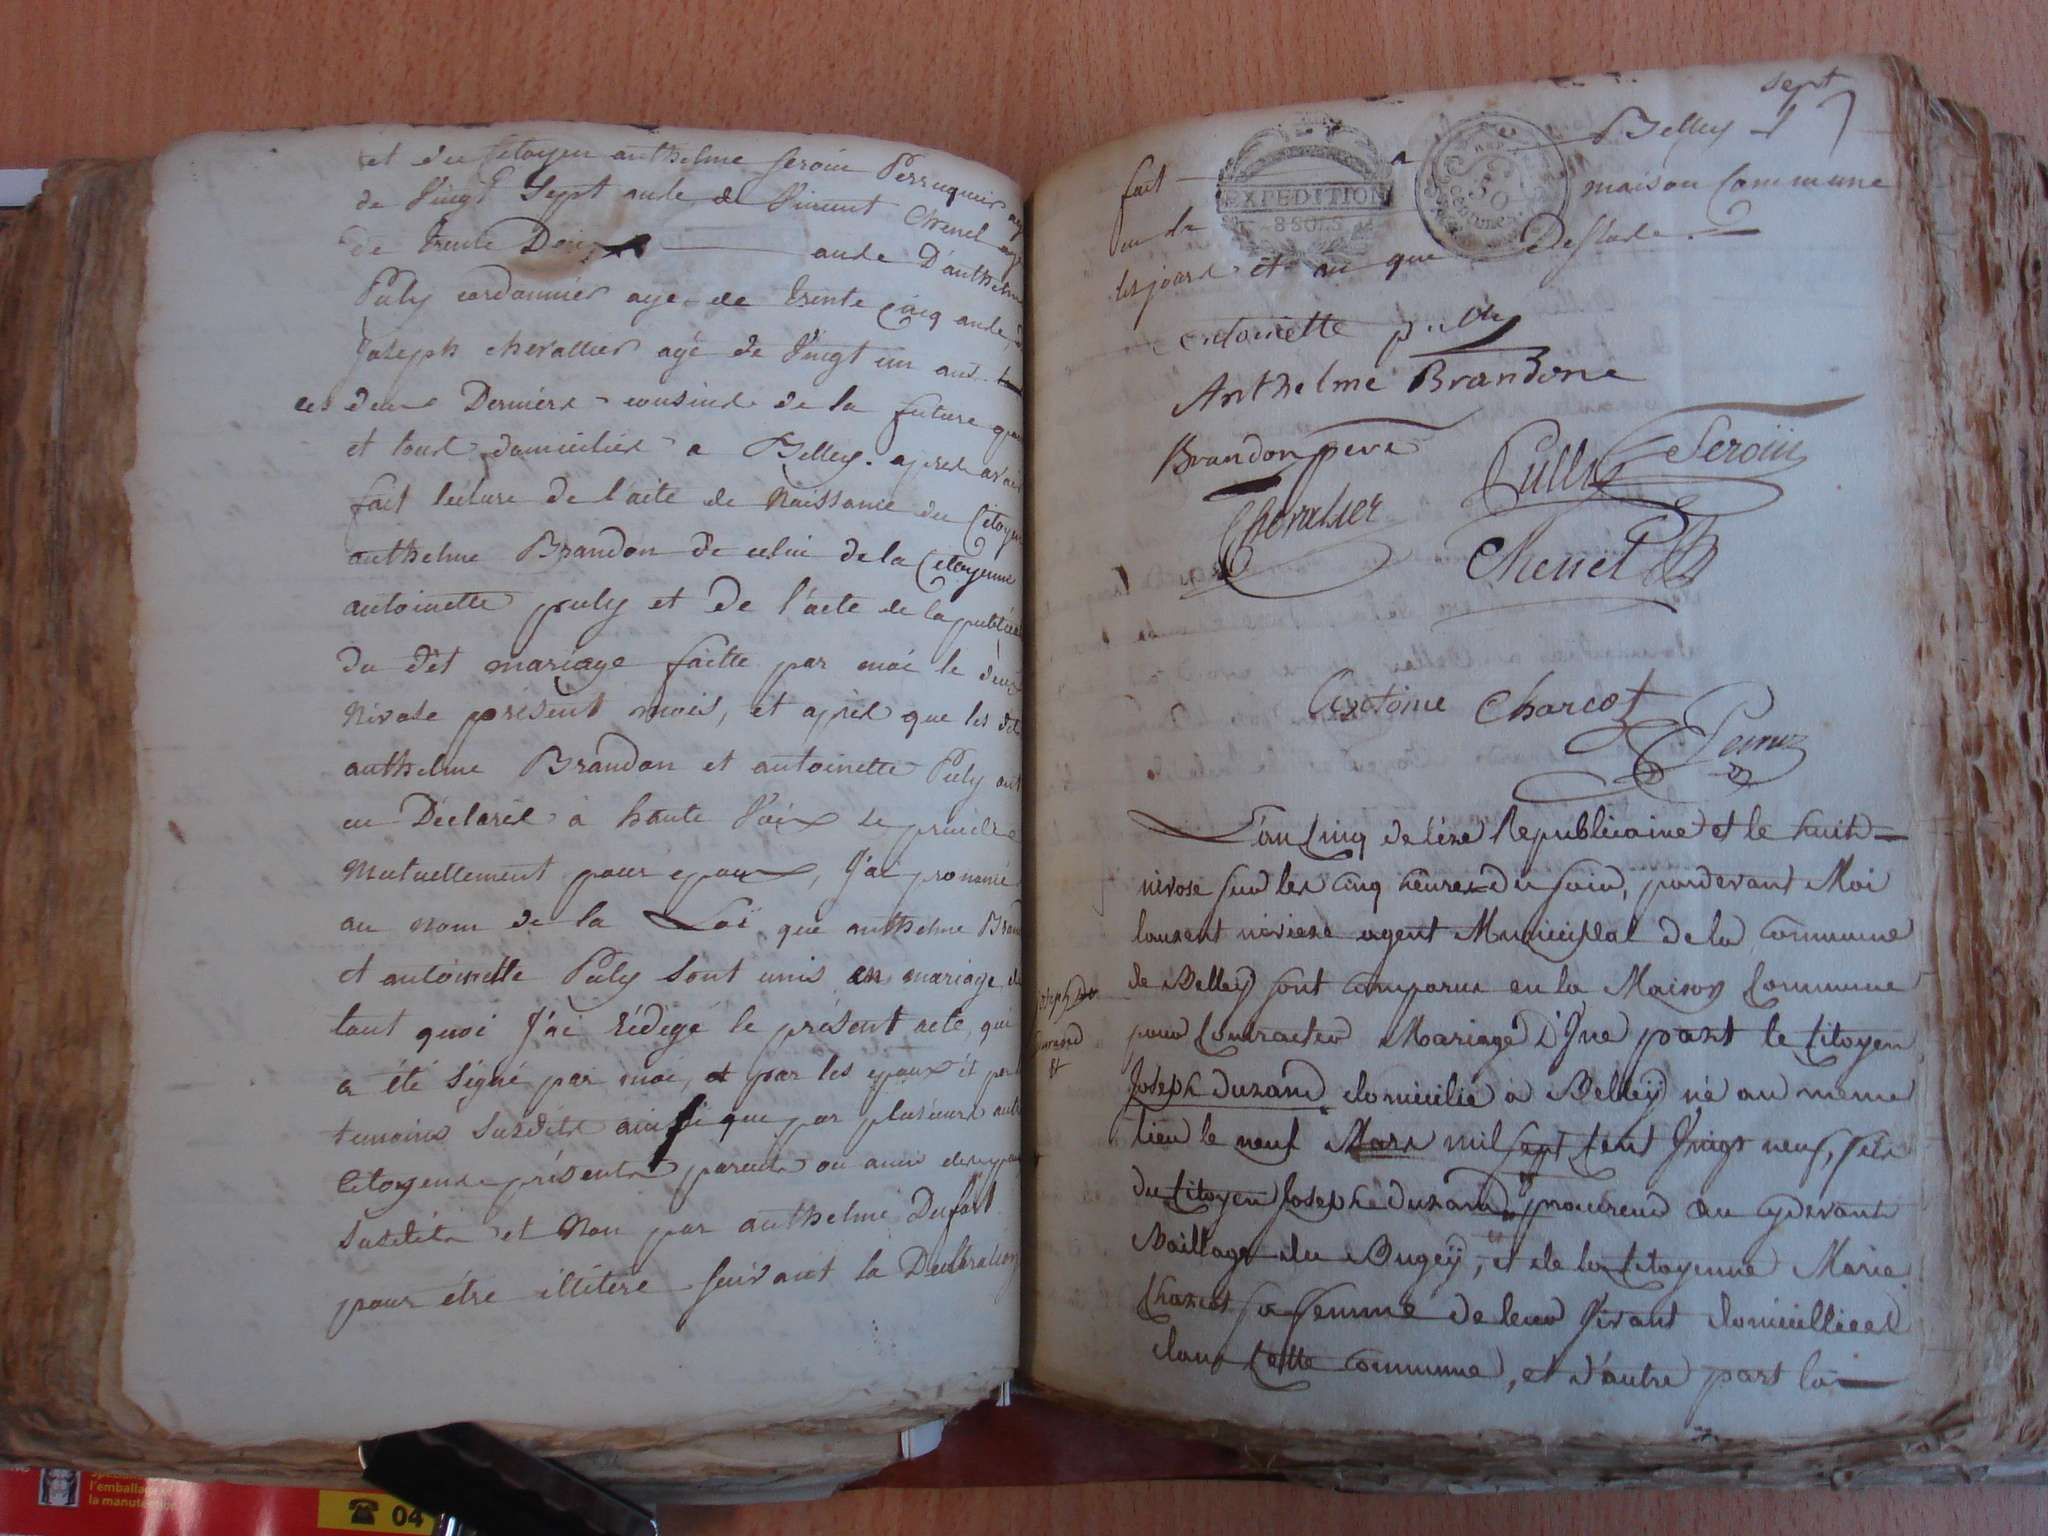 et du Citoyen anthelme seroin Perruquier agé
de Vingt Sept ans & de Vincent Chenel agé
de trente Deux ans & D'anthelme
Puly cordonnier agé de trente cinq ans &
Joseph chevallier agé de Vingt un ans
ces deux Derniers cousins de la future
et tous domiciliés a Belley. apres avoir
fait lecture de l'acte de Naissance du Citoyen
anthelme Brandon de celui de la Citoyenne
antoinette puly et de l'acte de la
du dit mariage faitte par moi le deux
Nivose présent mois, et après que les dits
anthelme Brandon et antoinette Puly ont
eu Déclarés à haute Voix se prendre
Mutuellement pour epoux, J'ai prononcé
au nom de la Loi que anthelme
et antoinette Puly sont unis en mariage,
tant quoi J'ai rédegé le présent acte, qui
a été Signé par moi, et par les epoux et
temoins Susdits ainsi que par plusieurs
Citoyens présents parents ou amis
Susdits et Non par anthelme Dufort
pour être illitére Suivant la Declaration
sept
fait a Belley 7
en la maison Commune
les jours et an que Dessus
EXPEDITION
8 SOLS
50
antoinette
Anthelme Brandone
Brandon pere
Pully Seroin
Chevalier
Chenel
Antoine Charcot
L'an Cinq de l'ère Republicaine et le huit
nivose sur les cinq heures du soir, pardevant Moi
laurent agent Municipal de la Commune
de Belley sont comparus en la Maison Commune
pour Contracter Mariage D'Une part le Citoyen
Joseph durand
&
Joseph Durand domicilié à Belleÿ né au meme
lieu le neuf Mars mil sept Cent Vingt neuf, fils
du Citoyen Joseph durand procureur au cydevant
Baillage du Bugeÿ, et de la Citoyenne Marie
Charcot sa femme de leur Vivant domicilliees
dans Cette Commune, et d'autre part la
l'emballage
la manutention
04